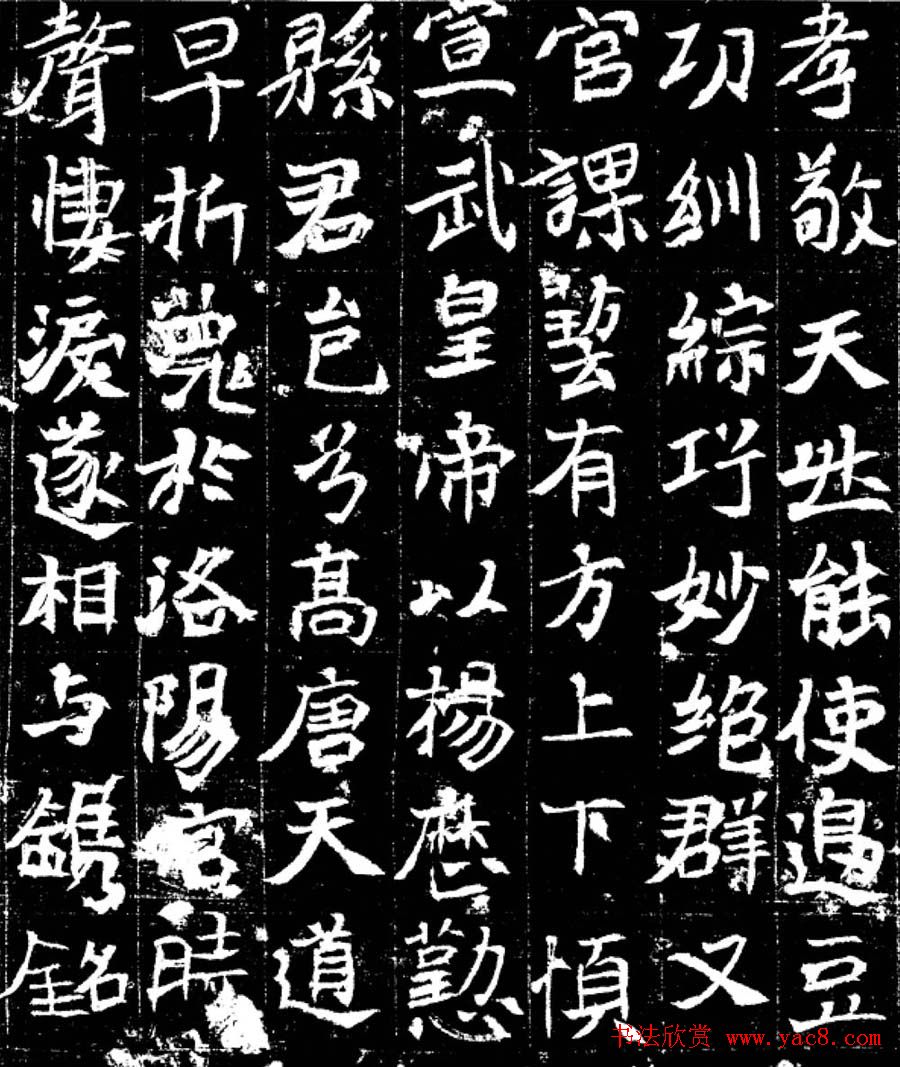 孝敬天能使邊豆
功紃綜巧妙絕群又
宮課藝有方上下
宣武皇帝以楊歷懃
縣君邑号高唐天道
早折薨於洛陽宮時
聲悽淚遂相与鐫銘
书法欣赏 www.yac8.com